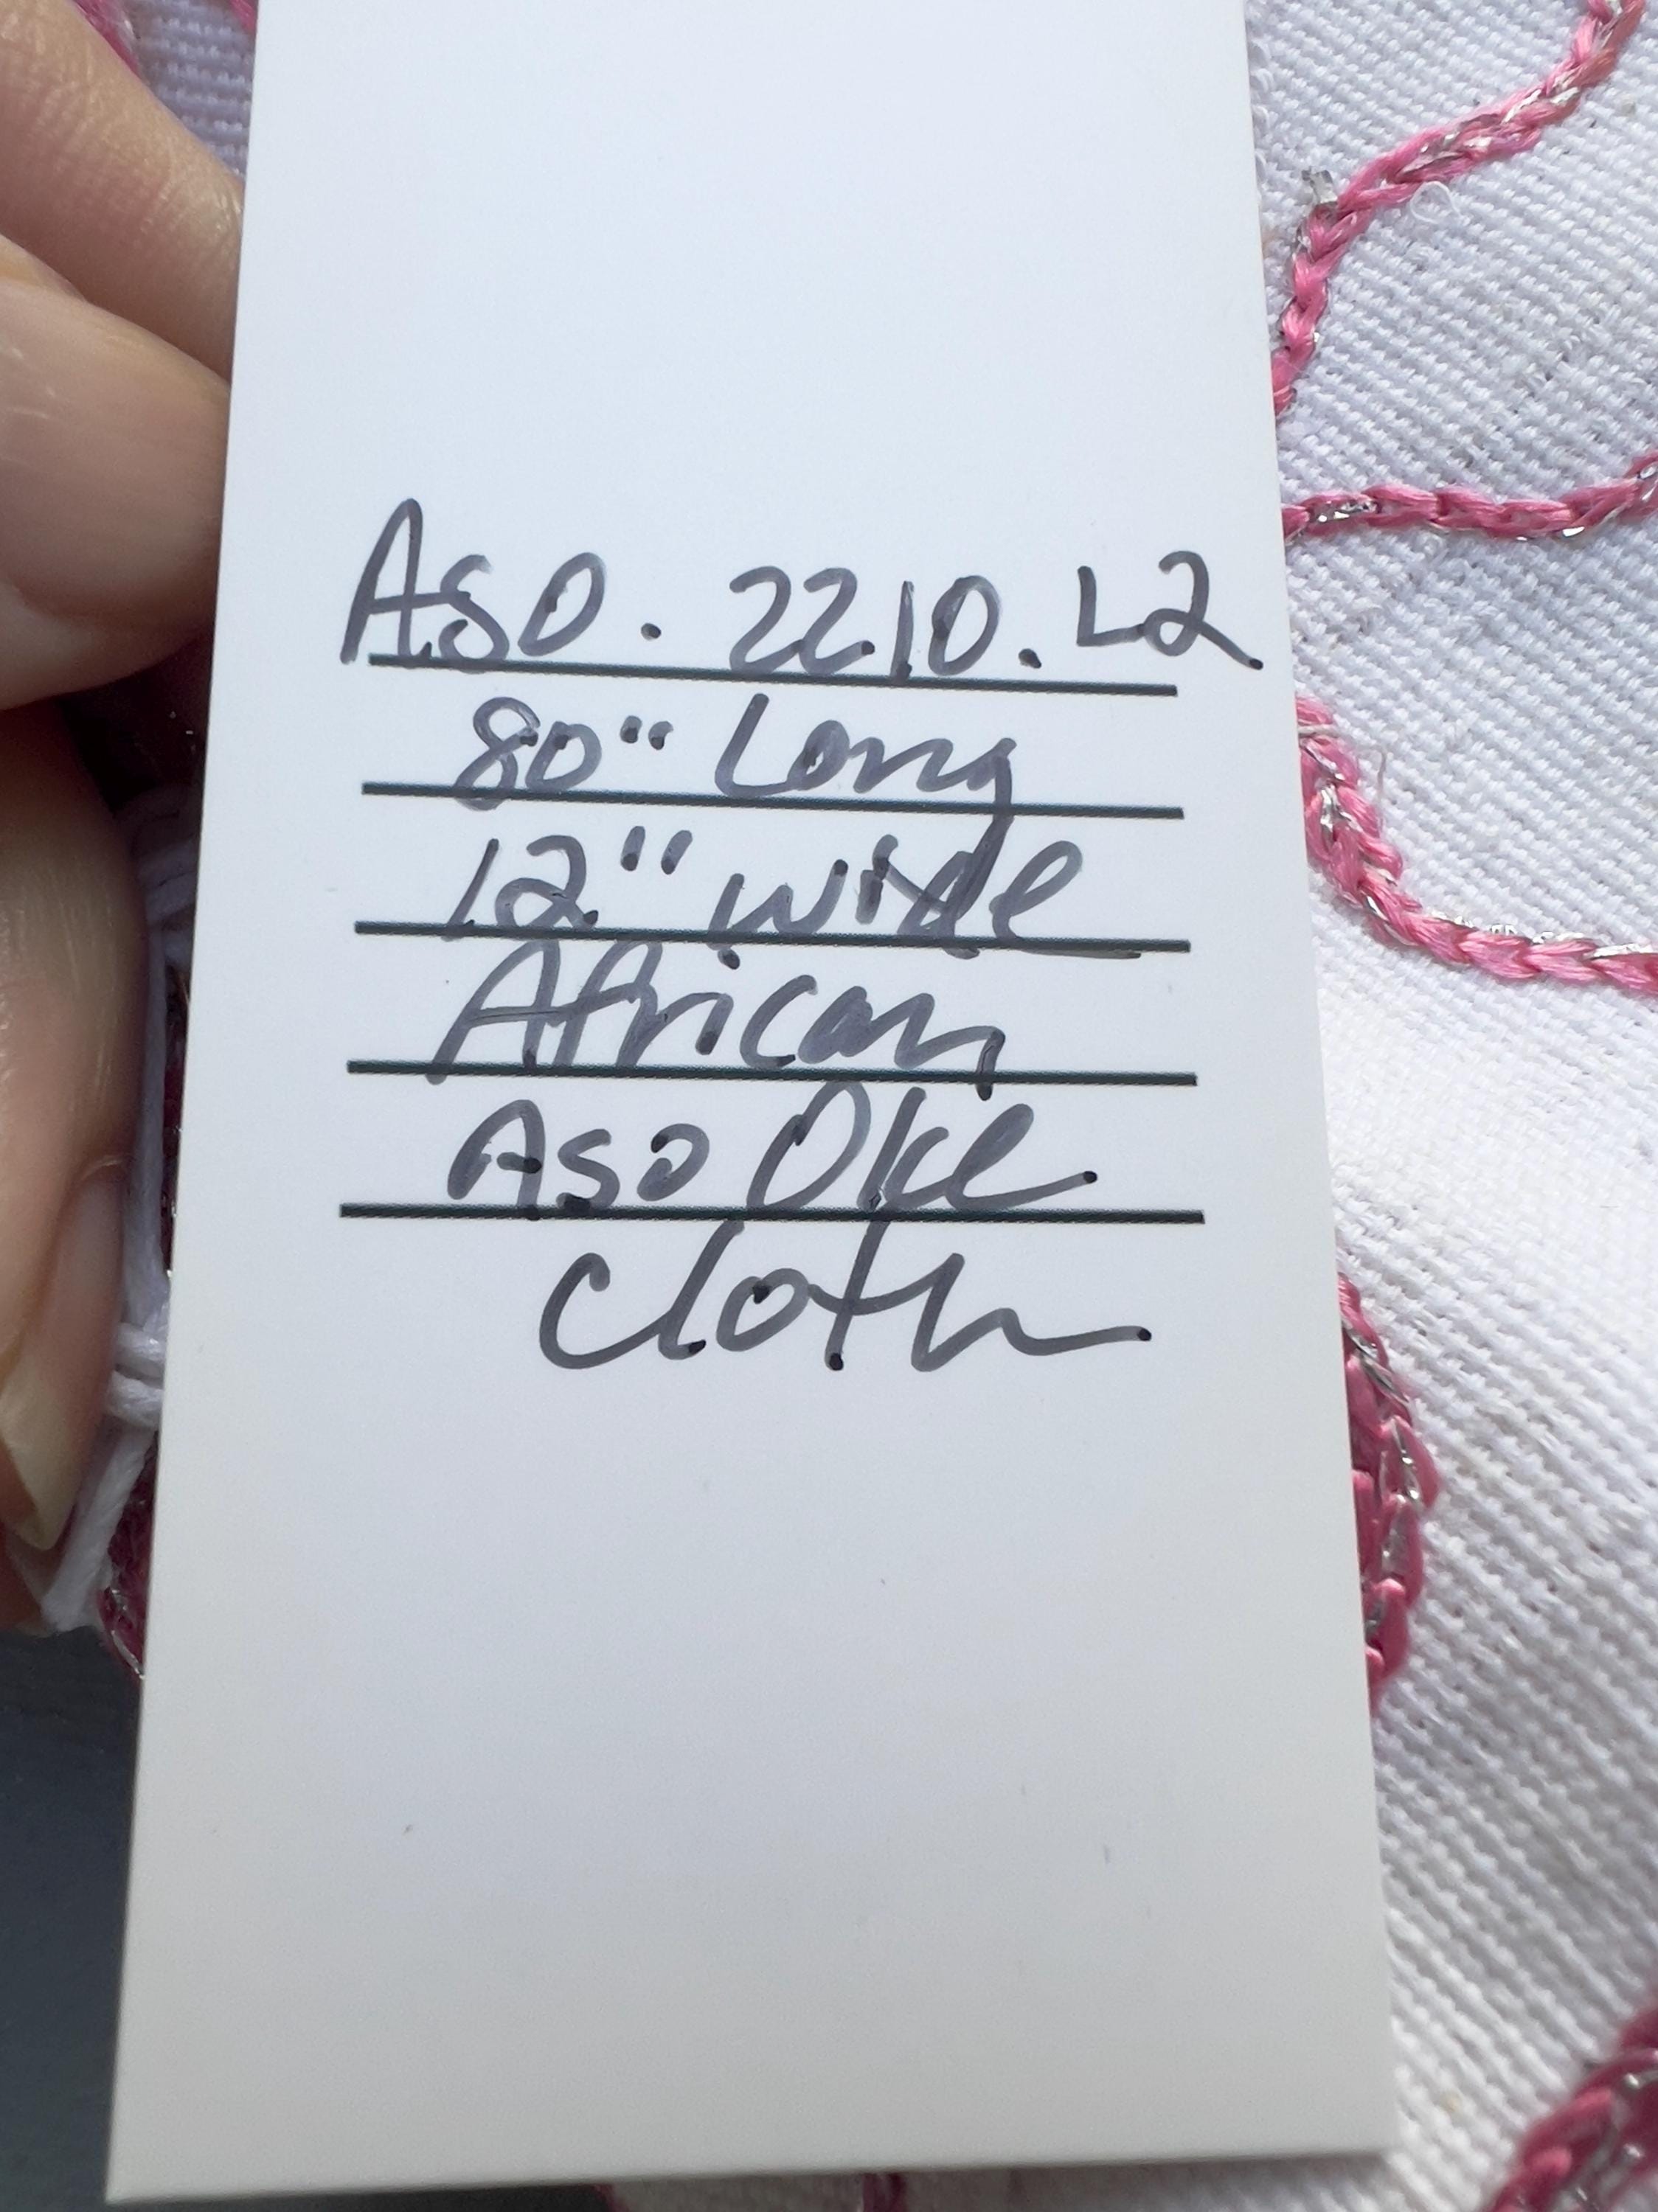 ASO. 2210. L2
80" Long
12" wide
African
Aso Oke
cloth